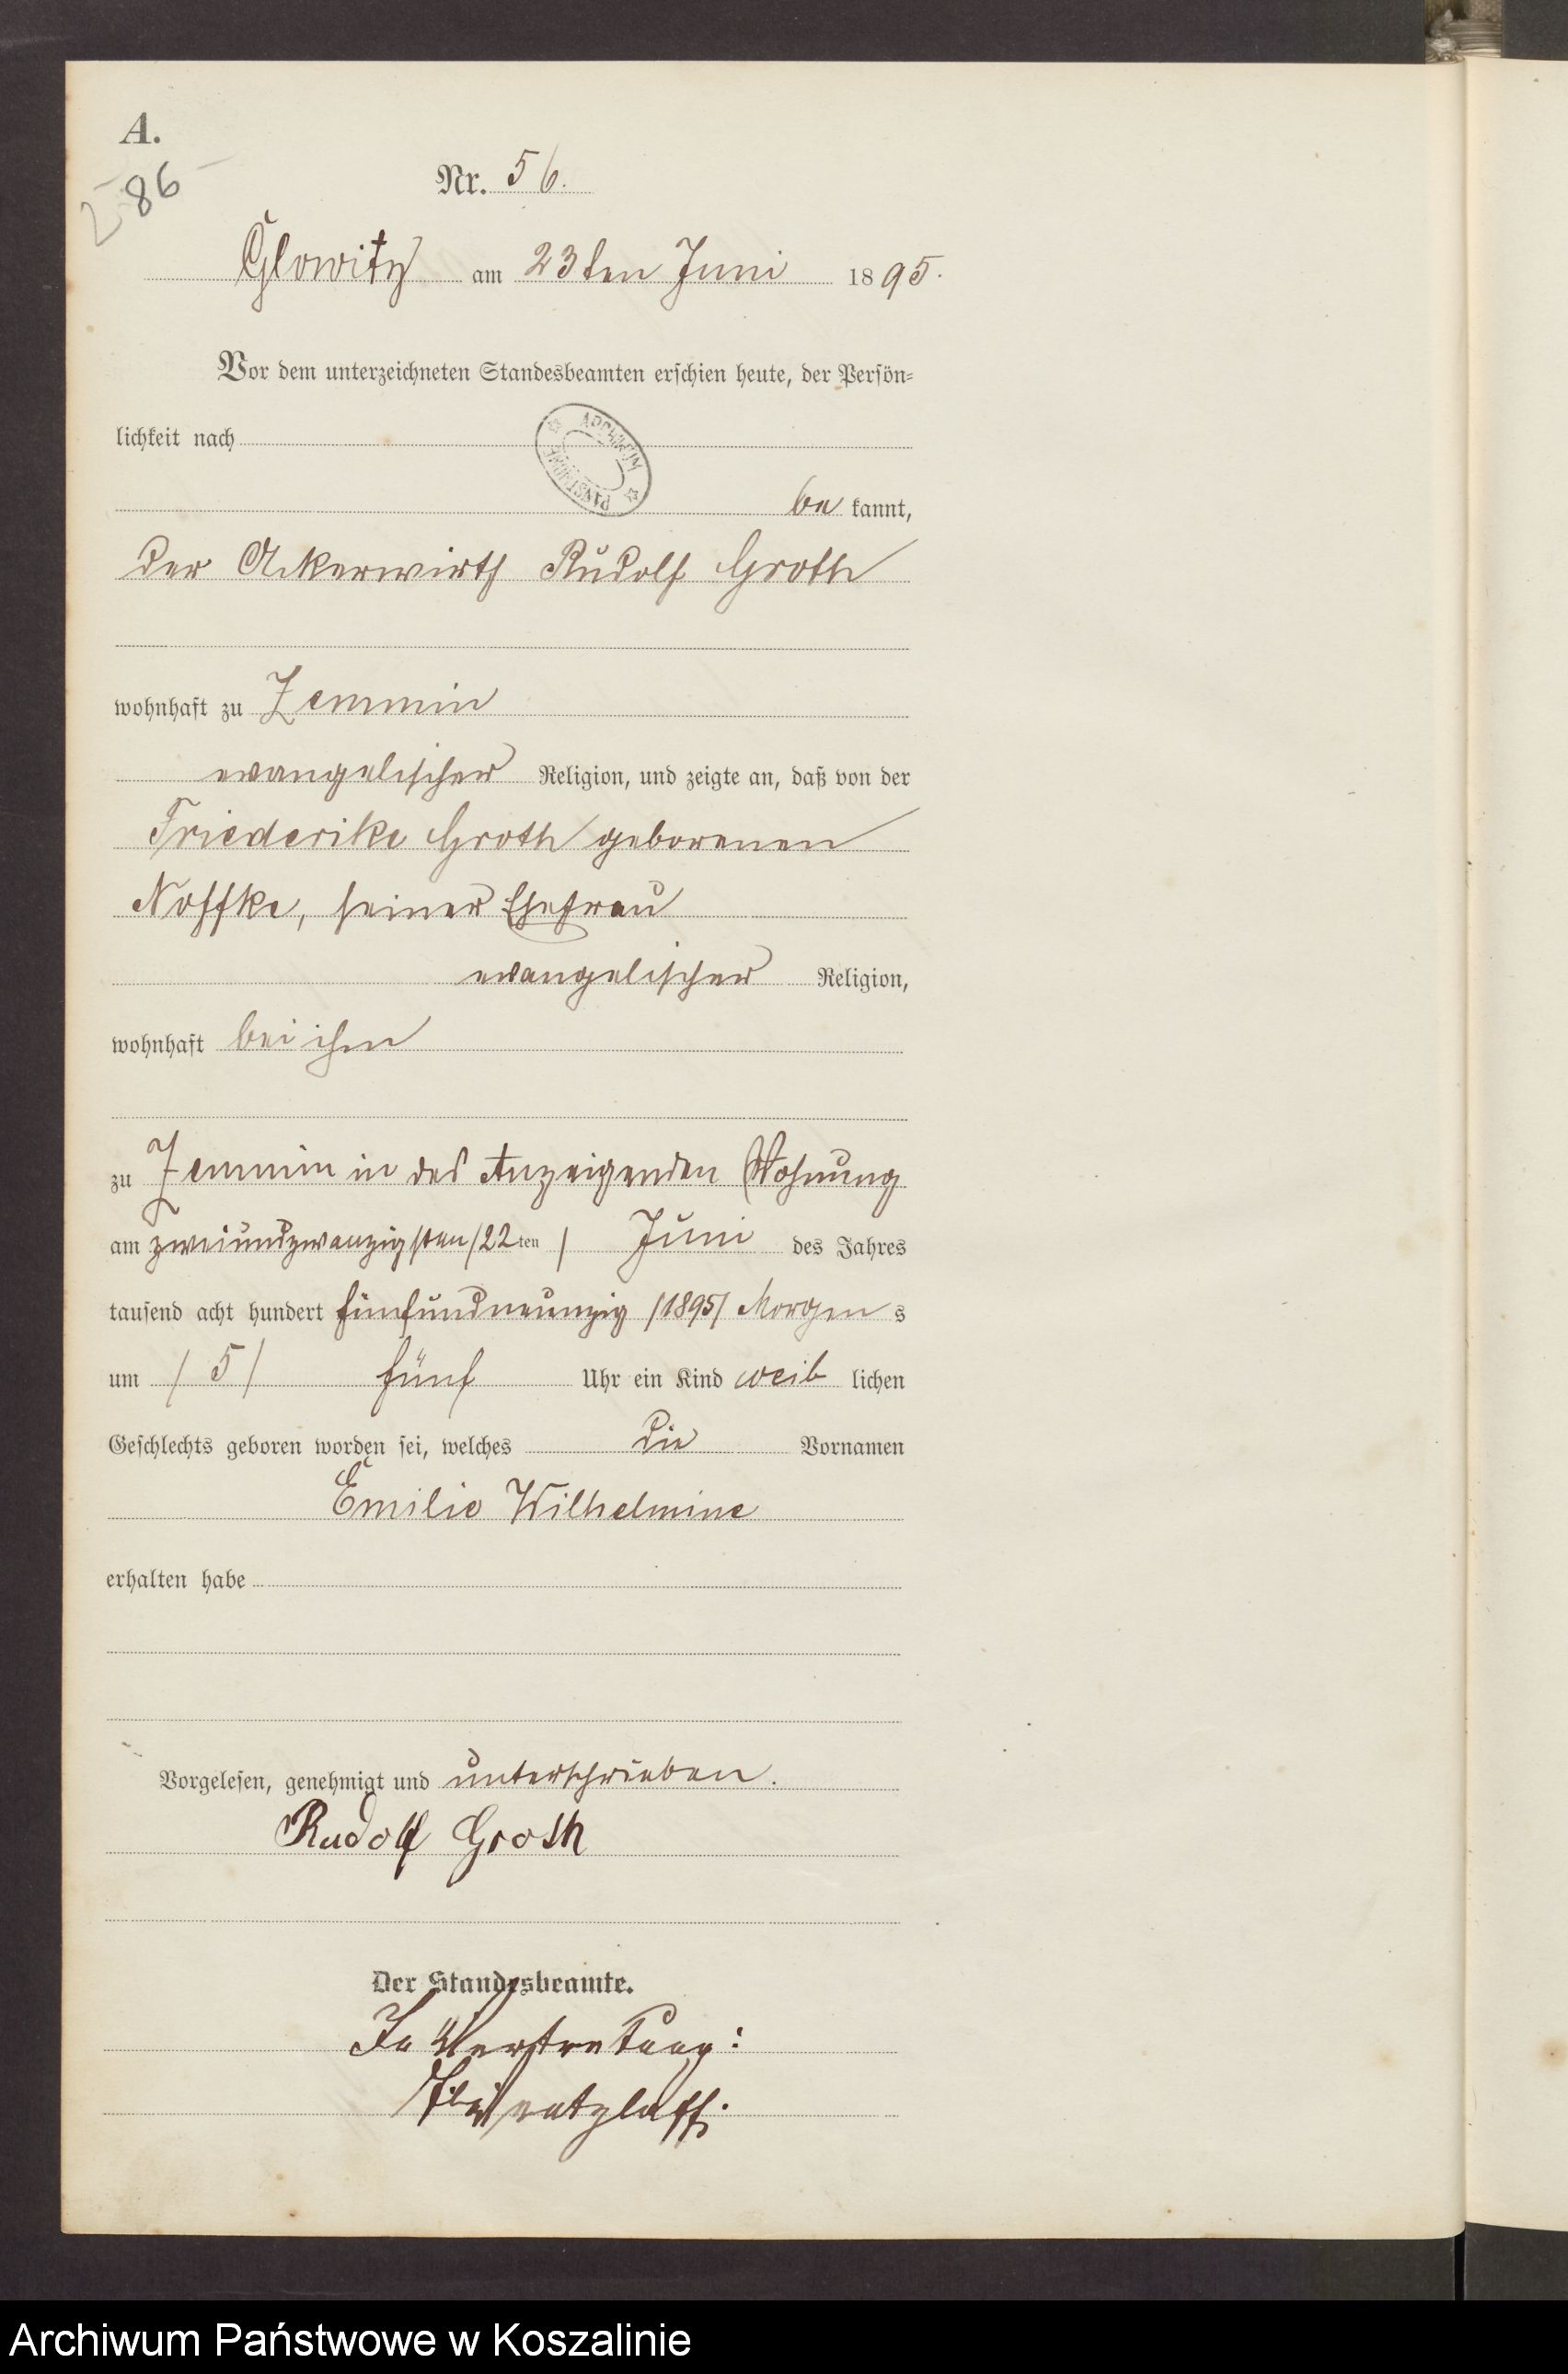 A.
86
Nr. 56.
Glowitz am 23ten Juni 1895.
Vor dem unterzeichneten Standesbeamten erschien heute, der Persön=
lichkeit nach
ARCHIWUM PAŃSTWOWE
be kannt,
der Ackerwirth Rudolf Groth
wohnhaft zu Zemmin
evangelischer Religion, und zeigte an, daß von der
Friederike Groth geborenen
Noffke, seiner Ehefrau
evangelischer Religion,
wohnhaft bei ihm
zu Zemmin in des Anzeigenden Wohnung
am zweiundzwanzigsten /22ten/ Juni des Jahres
tausend acht hundert fünfundneunzig /1895/ Morgen s
um /5/ fünf Uhr ein Kind weib lichen
Geschlechts geboren worden sei, welches die Vornamen
Emilie Wilhelmine
erhalten habe
Vorgelesen, genehmigt und unterschrieben.
Rudolf Groth
Der Standesbeamte.
In Vertretung:
Archiwum Państwowe w Koszalinie